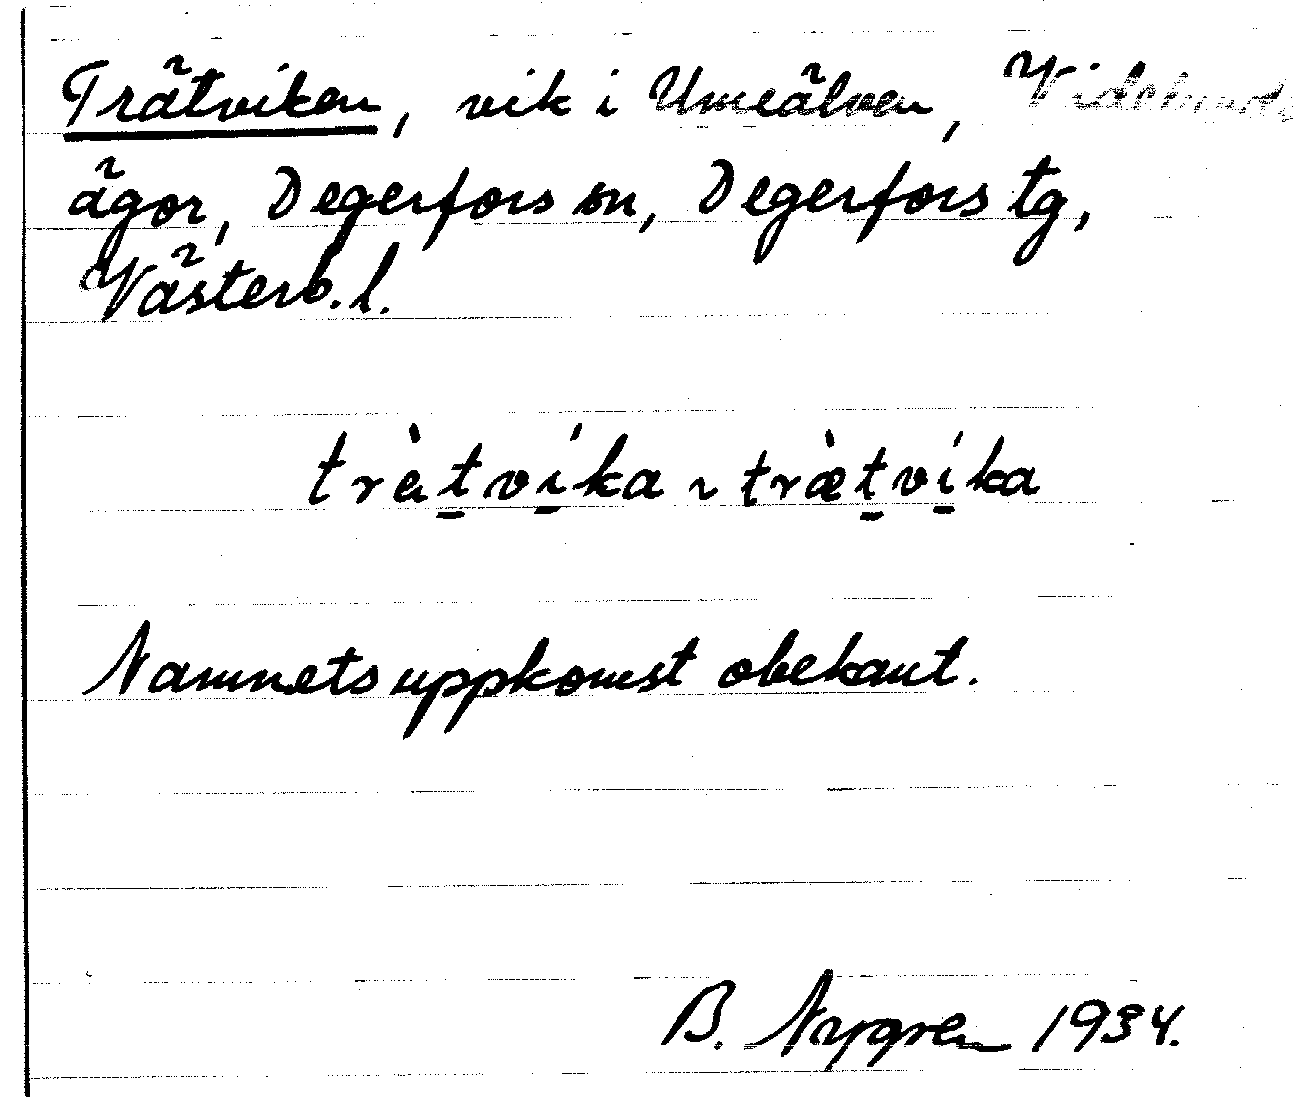 Trätviken, vik i Umeälven,
ägor, Degerfors sn, Degerfors tg,
Västerb. l.
trètvíka ~ træ̀tvíka
Namnets uppkomst obekant.
B. Nygren 1934.